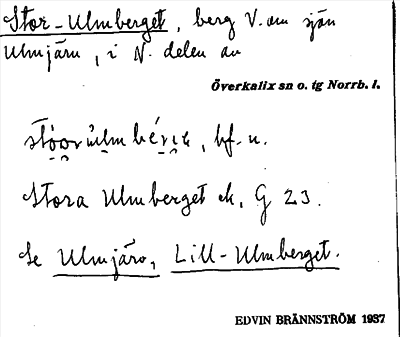 Stor-Ulmberget, berg V. om sjön
Ulmjärv, i N. delen av
Överkalix sn o. tg Norrb. l.
bf. u.
Stora Ulmberget ek. G 23.
Se Ulmjärv, Lill-Ulmberget.
EDVIN BRÄNNSTRÖM 1937